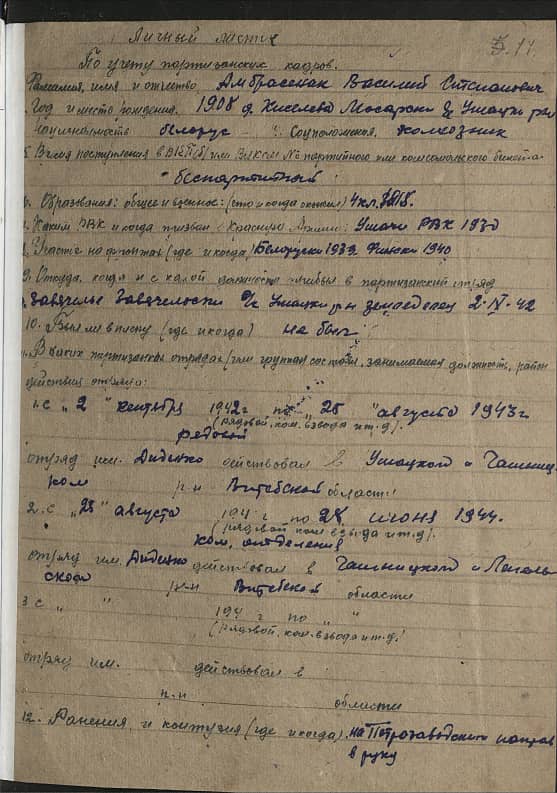 Личный листок
По учету партизанских кадров.
Фамилия, имя и отчество. Амбрасенак Василий Степанович
Год и место рождения. 1908 д. Киселева Мосарски Ушацки
белорус Соцположения, колхозник
5 Время поступления в ВКП(б) или ВЛКСМ № партийного или комсомольского билета
беспартийный
6. Образования: общее и военное: (что и когда окончил) 4 кл.
Каким РВК и когда призван Красную Армию: Ушачи РВК 1930
Участие на фронтах (где и когда) Белоруски 1939 Фински 1940
9. Откуда, когда и с какой должности прибыл в партизанский отряд
Ушацки р-н земледелец 2.IX.42
10. Был ли в плену (где и когда) не был
В каких партизанских отрядах или группах состоял, занимаемая должность, район
действия отряда:
1. с „2" сентября 1942 г по „25" августа 1943 г
(рядовой, ком. взвода и т.д).
редовой
отряд им. Диденко действовал в Ушацкого и Чашниц
ком р-н Витебской области
2. с „25" августа 194 г по 28 июня 1944.
(рядовой ком взвода и т.д).
ком. отделения
отряд им. Диденко действовал в Чашницкого и Лепель
ском р-н Витебской области
3 с „ " 194 г по „ "
(рядовой, ком. взвода и т.д.)
отряд им. действовал в
р-н области
12. Ранения и контузия (где и когда). на Петрозаводском направ
в руку